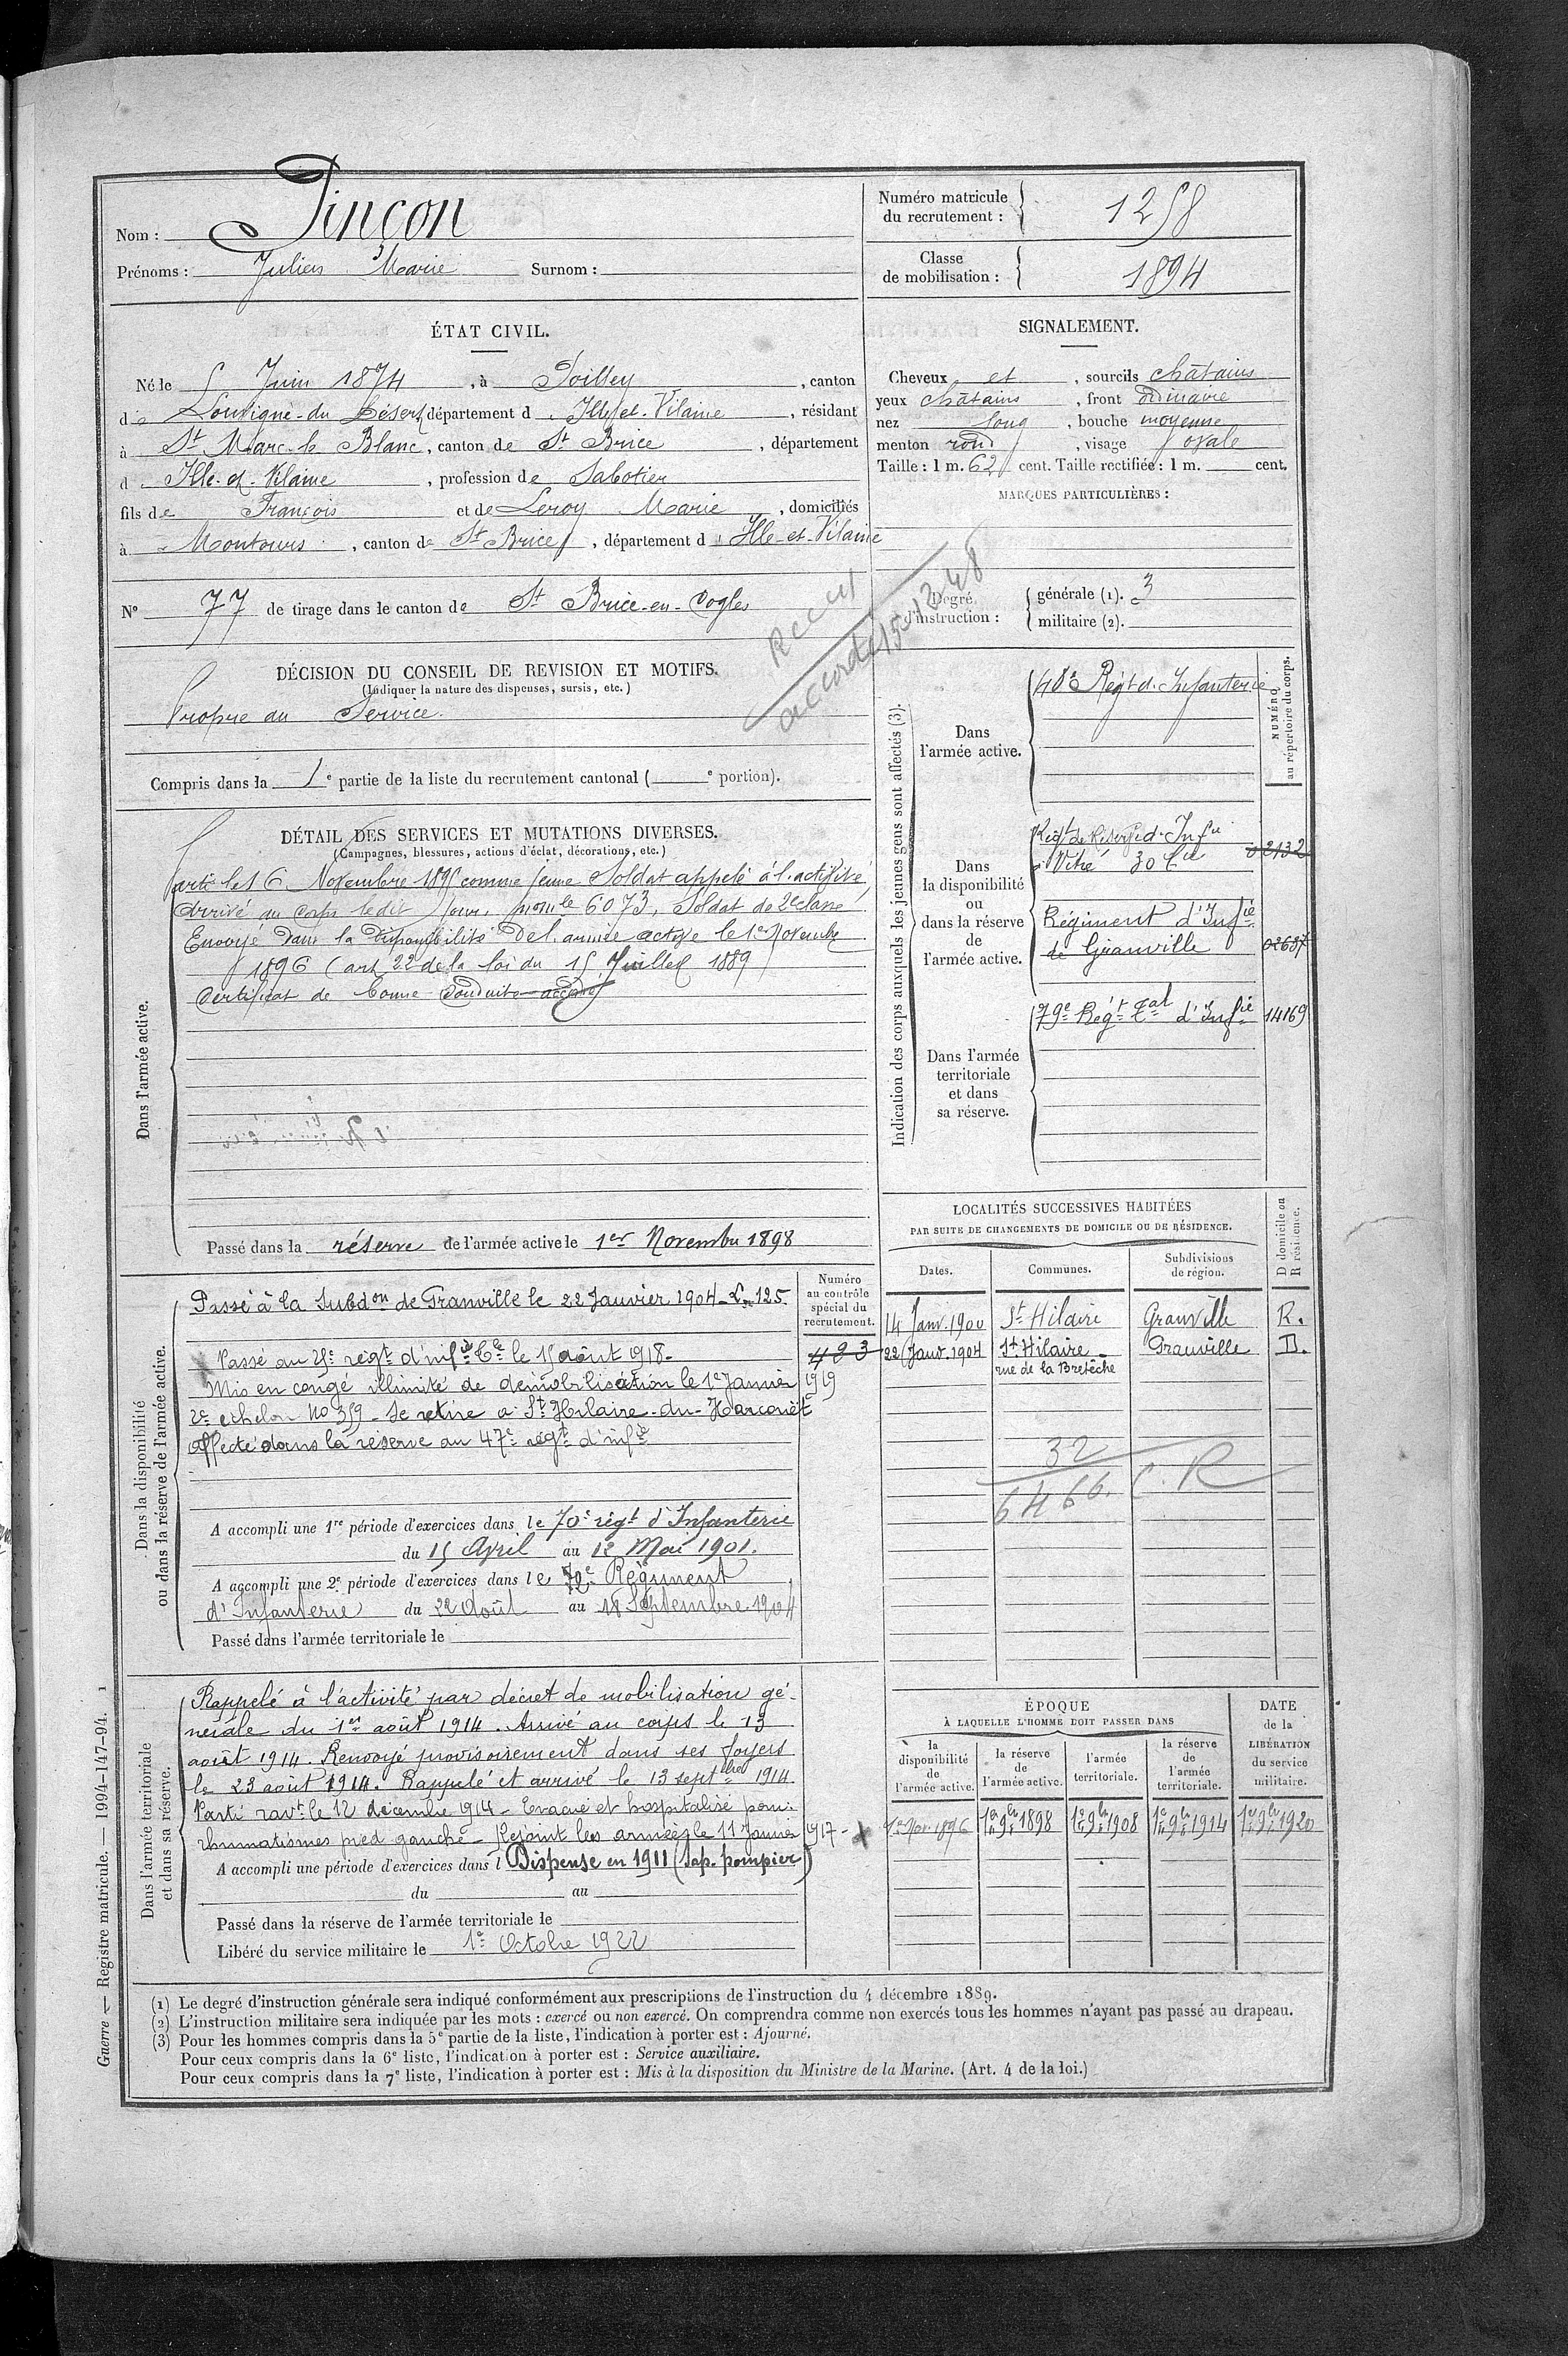 Nom : Pinçon
Prénoms : Julien Marie Surnom :
Numéro matricule du recrutement : 1258
Classe de mobilisation : 1894
ÉTAT CIVIL.
Né le 5 Juin 1874, à Poilley, canton
de Louvigné-du Désert, département d'Ille et-Vilaine, résidant
à St Marc-le Blanc, canton de St Brice, département
d'Ille-et-Vilaine, profession de Sabotier
fils de François et de Leroy Marie, domiciliés
à Montours, canton de St Brice, département d'Ille-et-Vilaine
N° 77 de tirage dans le canton de St Brice-en-Cogles
SIGNALEMENT.
Cheveux et, sourcils châtains
yeux châtains, front ordinaire
nez long, bouche moyenne
menton rond, visage ovale
Taille : 1 m. 62 cent. Taille rectifiée : 1 m. cent.
MARQUES PARTICULIÈRES :
Degré d'instruction : générale (1). 3
militaire (2).
accordé 15-12-48
DÉCISION DU CONSEIL DE REVISION ET MOTIFS.
(Indiquer la nature des dispenses, sursis, etc.)
Propre au Service.
Compris dans la 1e partie de la liste du recrutement cantonal ( e portion).
DÉTAIL DES SERVICES ET MUTATIONS DIVERSES.
(Campagnes, blessures, actions d'éclat, décorations, etc.)
Dans l'armée active.
Parti le 16 Novembre 1895 comme jeune Soldat appelé à l'activité,
Arrivé au Corps le dit jour, mon le 6073, Soldat de 2e classe
Envoyé dans la disponibilité de l'armée active le 1er Novembre
1896 (art 22 de la loi du 15 Juillet 1889
Certificat de bonne Conduite accordé
Passé dans la réserve de l'armée active le 1er Novembre 1898
Indication des corps auxquels les jeunes gens sont affectés (3).
NUMÉRO au répertoire du corps.
Dans l'armée active.
48e Régt d'Infanterie
Dans la disponibilité ou dans la réserve de l'armée active.
Régt de Réserve d'Infie
Vitré 30 Cie 02132
Régiment d'Infie
de Granville 02637
Dans l'armée territoriale et dans sa réserve.
79e Régt Tal d'Infie 14169
LOCALITÉS SUCCESSIVES HABITÉES
PAR SUITE DE CHANGEMENTS DE DOMICILE OU DE RÉSIDENCE.
Dates. Communes. Subdivisions de région. D domicile ou R résidence.
14 Janv. 1900 St Hilaire Granville R.
22 Janv. 1904 St Hilaire Granville D.
rue de la Bretèche
32
6466. C. R
Dans la disponibilité ou dans la réserve de l'armée active.
Numéro au contrôle spécial du recrutement.
423
Passé à la Subdon de Granville le 22 Janvier 1904 - L. 125
Passé au 25e régt d'infie Cle le 15 août 1918.
Mis en congé illimité de démobilisation le 1er Janvier 1919
2e echelon No 359 - Se retire à St Hilaire-du-Harcouët
affecté dans la réserve au 47e régt d'infie
A accompli une 1re période d'exercices dans le 70e régt d'Infanterie
du 15 Avril au 12 Mai 1901.
A accompli une 2e période d'exercices dans le 70e Régiment
d'Infanterie du 22 Août au 18 Septembre 1904
Passé dans l'armée territoriale le
Dans l'armée territoriale et dans sa réserve.
Rappelé à l'activité par décret de mobilisation gé-
nérale du 1er août 1914. Arrivé au corps le 13
août 1914. Renvoyé provisoirement dans ses foyers
le 23 août 1914. Rappelé et arrivé le 13 septbre 1914.
Parti ravt le 12 décembre 1914 - Evacué et hospitalisé pour
rhumatismes pied gauche - Rejoint les armées le 11 Janvier 1917 -
A accompli une période d'exercices dans l Dispense en 1911 (Sap. pompier)
du au
Passé dans la réserve de l'armée territoriale le
Libéré du service militaire le 1er Octobre 1922
ÉPOQUE
À LAQUELLE L'HOMME DOIT PASSER DANS
la disponibilité de l'armée active. la réserve de l'armée active. l'armée territoriale. la réserve de l'armée territoriale.
DATE de la LIBÉRATION du service militaire.
1er Nov. 1896 1er 9bre 1898 1er 9bre 1908 1er 9bre 1914 1er 9bre 1920
(1) Le degré d'instruction générale sera indiqué conformément aux prescriptions de l'instruction du 4 décembre 1889.
(2) L'instruction militaire sera indiquée par les mots : exercé ou non exercé. On comprendra comme non exercés tous les hommes n'ayant pas passé au drapeau.
(3) Pour les hommes compris dans la 5e partie de la liste, l'indication à porter est : Ajourné.
Pour ceux compris dans la 6e liste, l'indication à porter est : Service auxiliaire.
Pour ceux compris dans la 7e liste, l'indication à porter est : Mis à la disposition du Ministre de la Marine. (Art. 4 de la loi.)
Guerre — Registre matricule. — 1994-147-94. 1